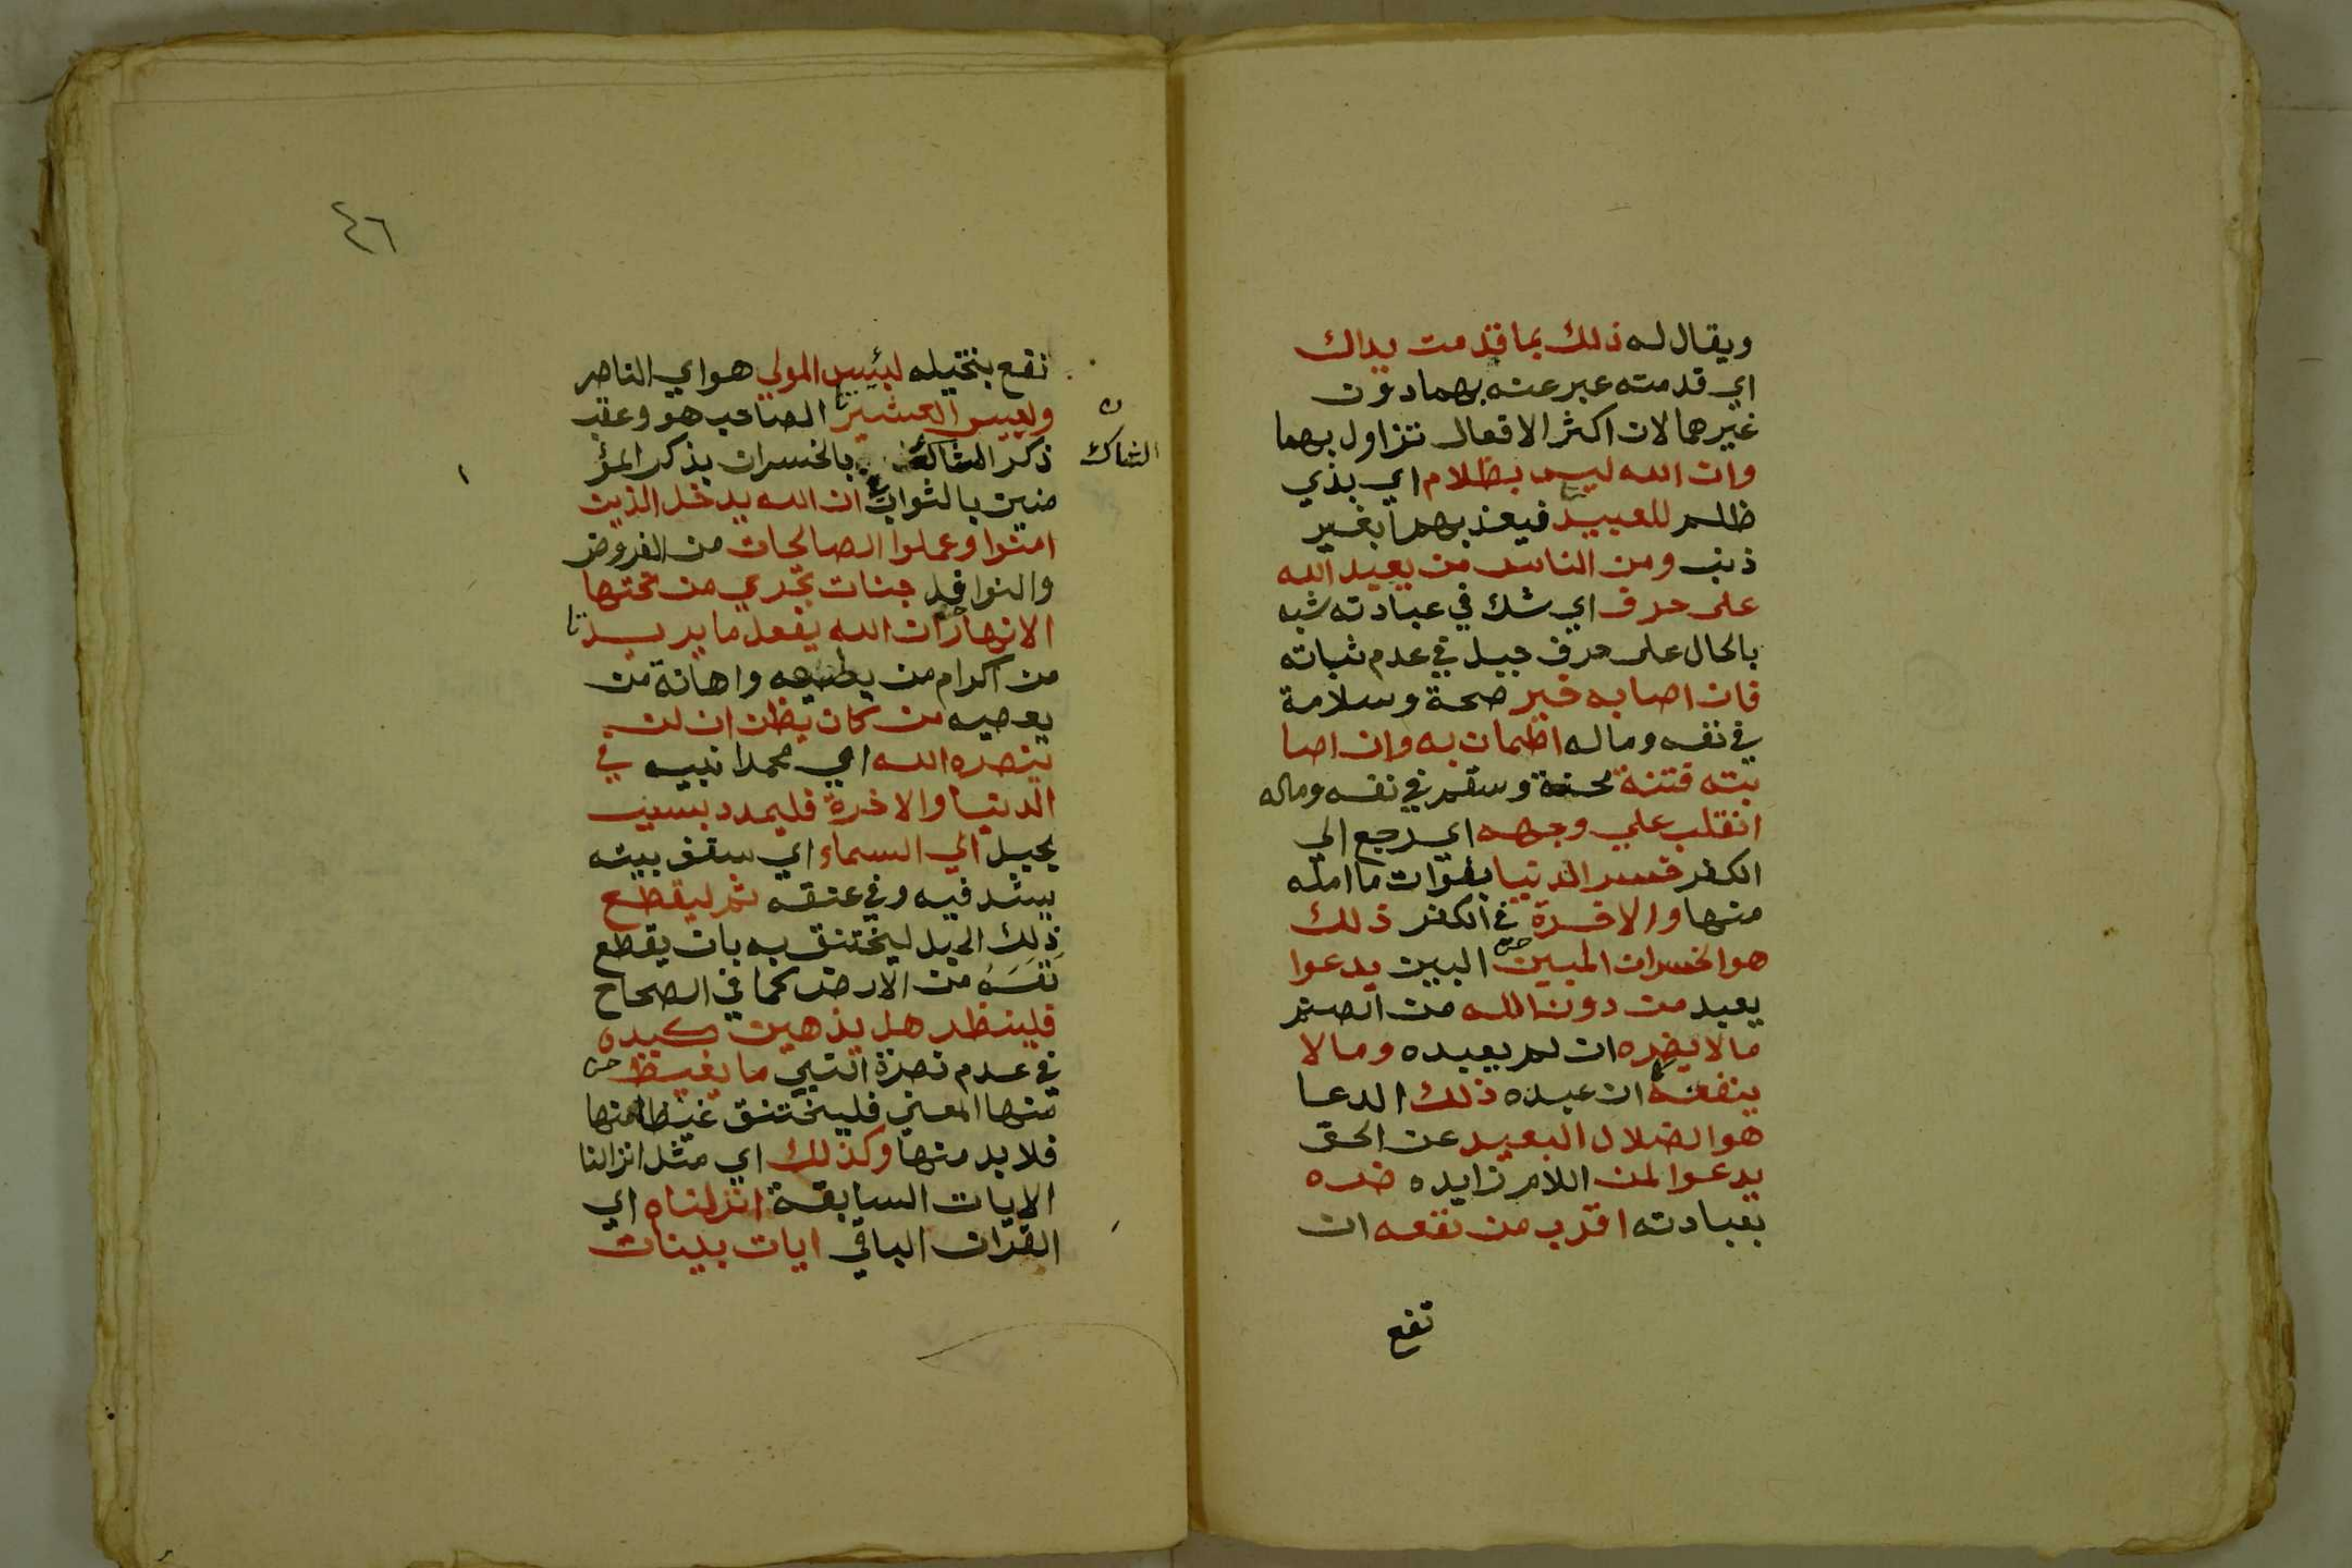 ويقال له ذلك بما قدمت يداك
اي قدمته عبر عنه بهما دون
غيرهما لان اكثر الافعال تزاول بهما
وان الله ليس بظلام اي بذي
ظلم للعبيد فيعذبهم بغير
ذنب ومن الناس من يعبد الله
على حرف اي شك في عبادته شبه
بالحال على حرف جبل في عدم ثباته
فان اصابه خير صحة وسلامة
في نفسه وماله اطمان به وان اصا
بته فتنة محنة وسقم في نفسه وماله
انقلب علي وجهه اي رجع الي
الكفر خسر الدنيا بفوات ما امله
منها والاخرة في الكفر ذلك
هو الخسران المبين البين يدعوا
يعبد من دون الله من الصنم
ما لا يضره ان لم يعبده وما لا
ينفعه ان عبده ذلك الدعا
هو الضلال البعيد عن الحق
يدعوا لمن اللام زايده ضره
بعبادته اقرب من نفعه ان
نفع
٤٦
نفع بتخيله لبئيس المولي هو اي الناصر
ولبيس العشير الصاحب هو وعقب
الشاك
ذكر بالخسران بذكر المؤ
منين بالثواب ان الله يدخل الذين
امنوا وعملوا الصالحات من الفروض
والنوافل جنات تجري من تحتها
الانهار ان الله يفعل ما يريد
من اكرام من يطيعه واهانة من
يعصيه من كان يظن ان لن
ينصره الله اي محمدا نبيه في
الدنيا والاخرة فليمدد بسبب
بحبل الي السماء اي سقف بيته
يشد فيه وفي عنقه ثم ليقطع
ذلك الحبل ليختنق به بان يقطع
نَفَسَهُ من الارض كما في الصحاح
فلينظر هل يذهبن كيده
في عدم نصرة النبي ما يغيظ
منها المعني فليختنق غيظا منها
فلا بد منها وكذلك اي مثل انزالنا
الايات السابقة انزلناه اي
القران الباقي ايات بينات